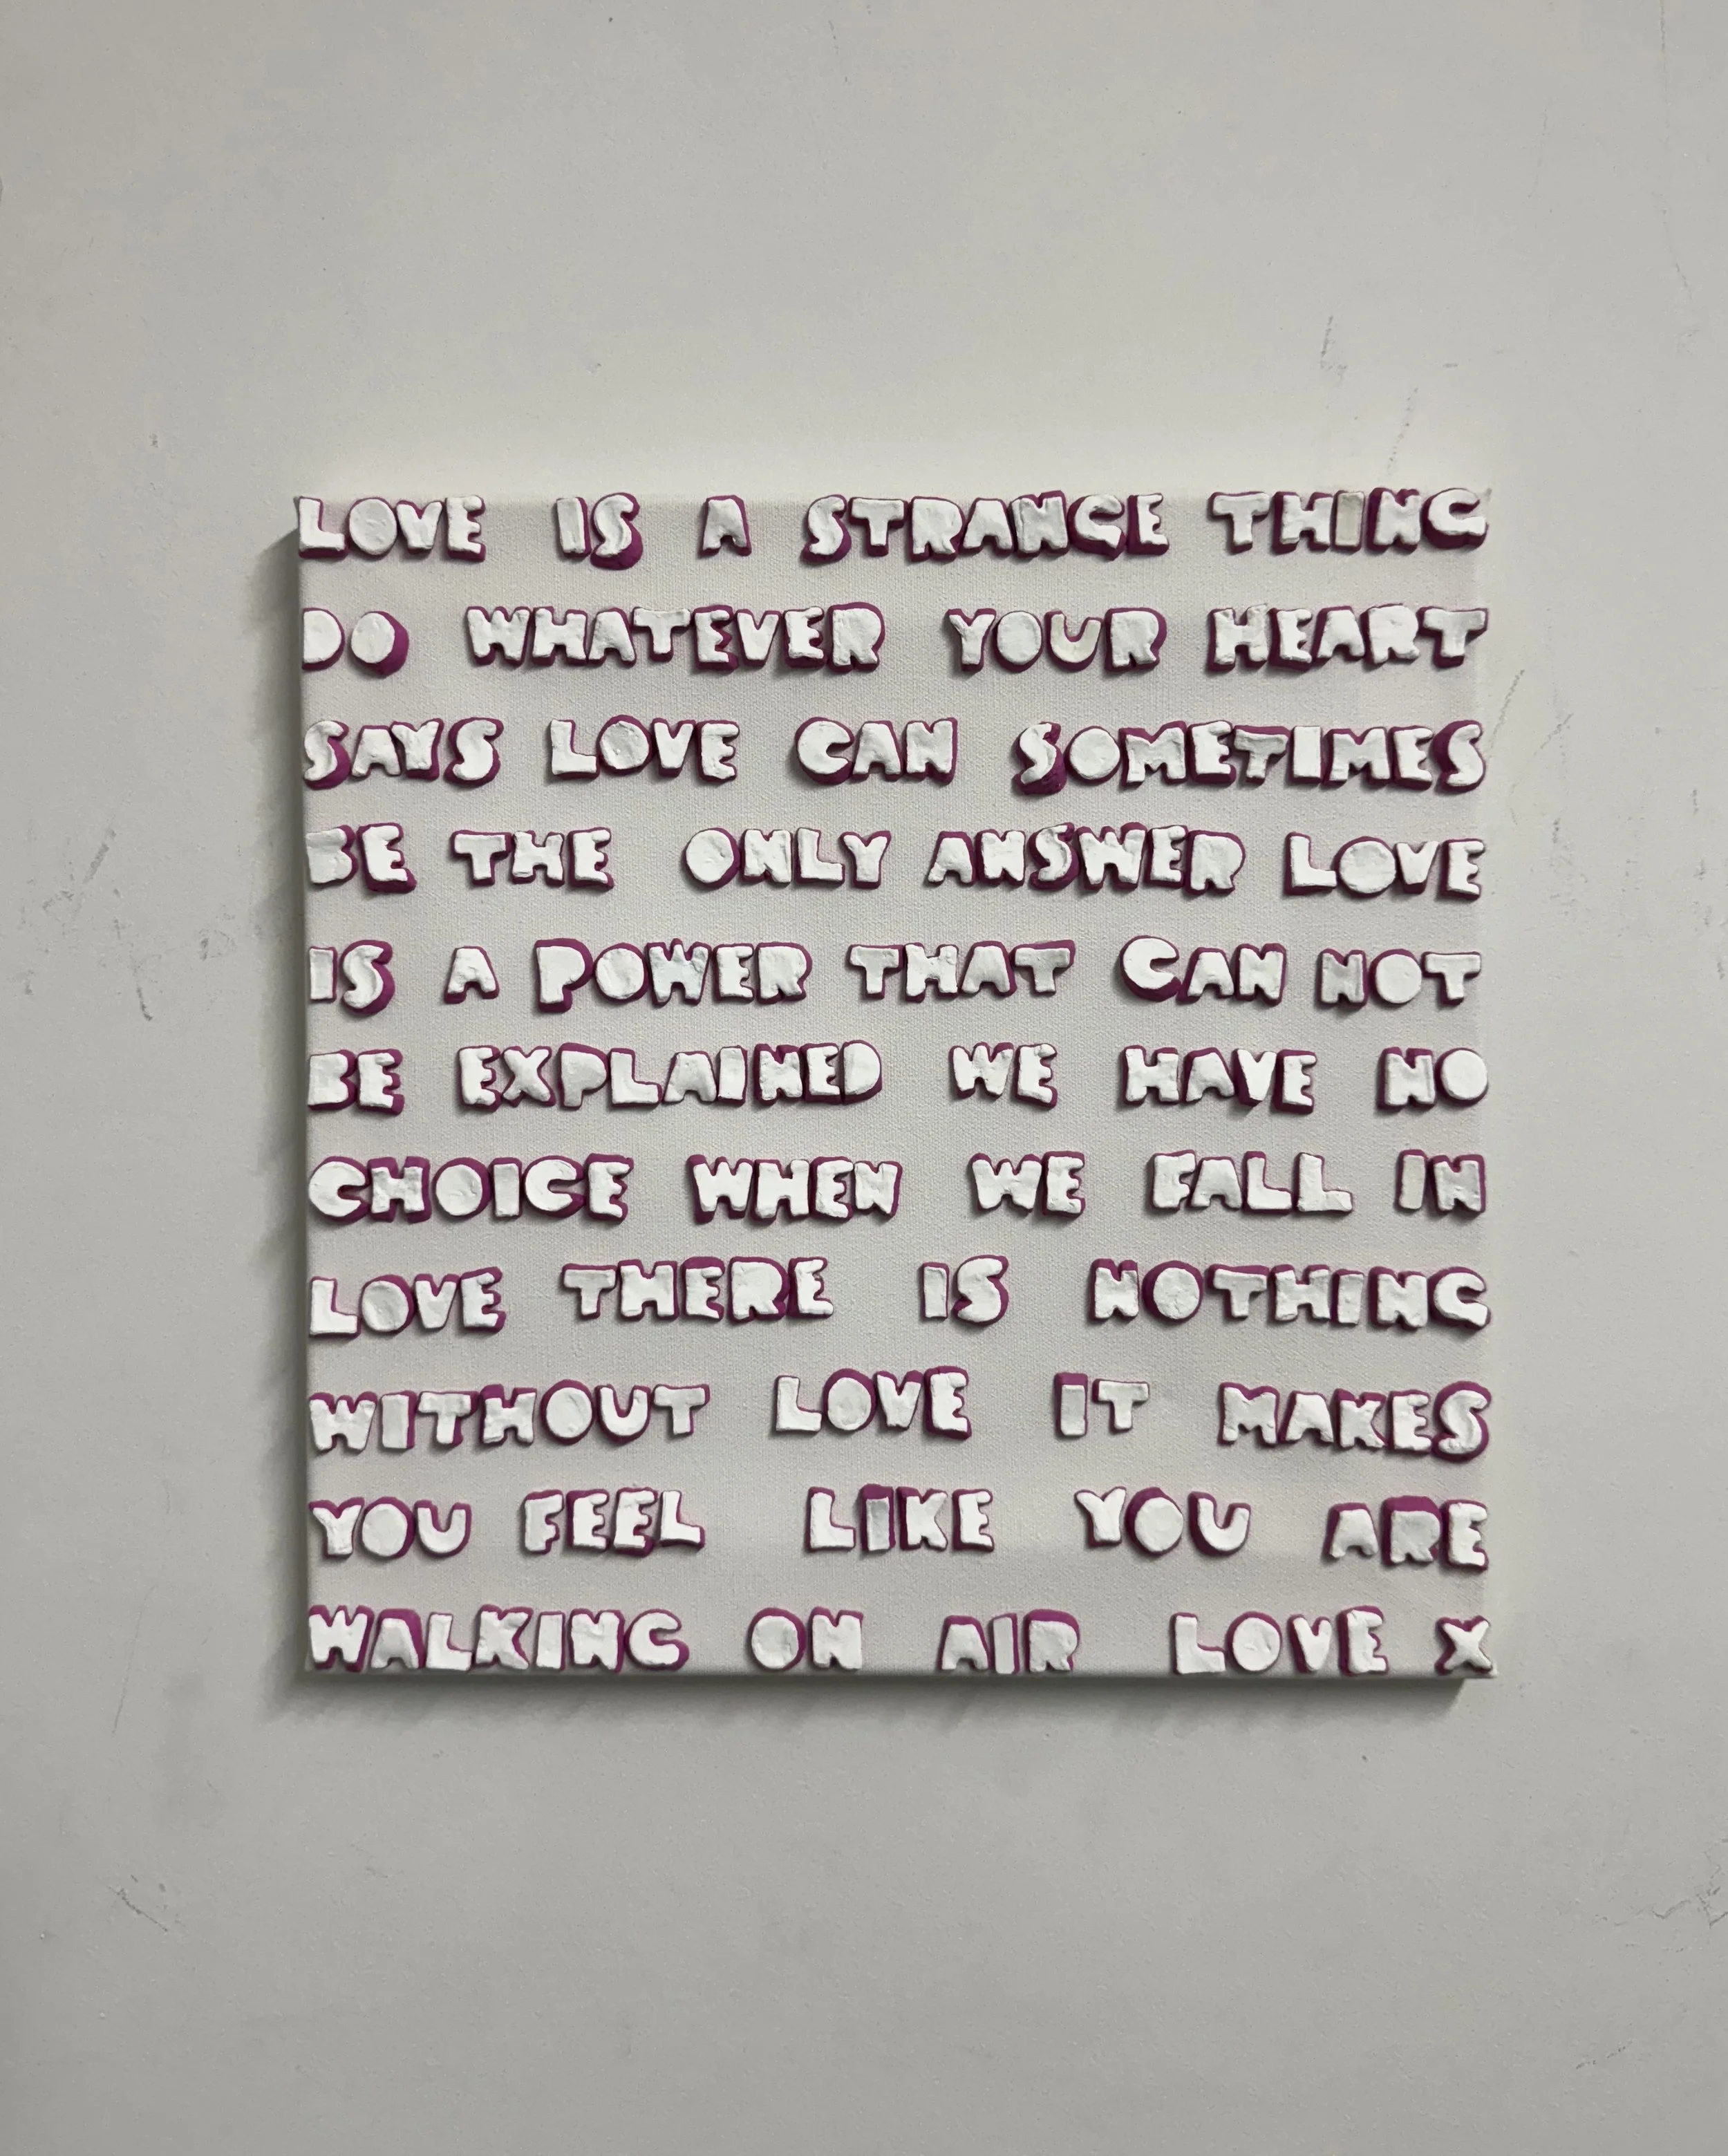 LOVE IS A STRANGE THING
DO WHATEVER YOUR HEART
SAYS LOVE CAN SOMETIMES
BE THE ONLY ANSWER LOVE
IS A POWER THAT CAN NOT
BE EXPLAINED WE HAVE NO
CHOICE WHEN WE FALL IN
LOVE THERE IS NOTHING
WITHOUT LOVE IT MAKES
YOU FEEL LIKE YOU ARE
WALKING ON AIR LOVE X